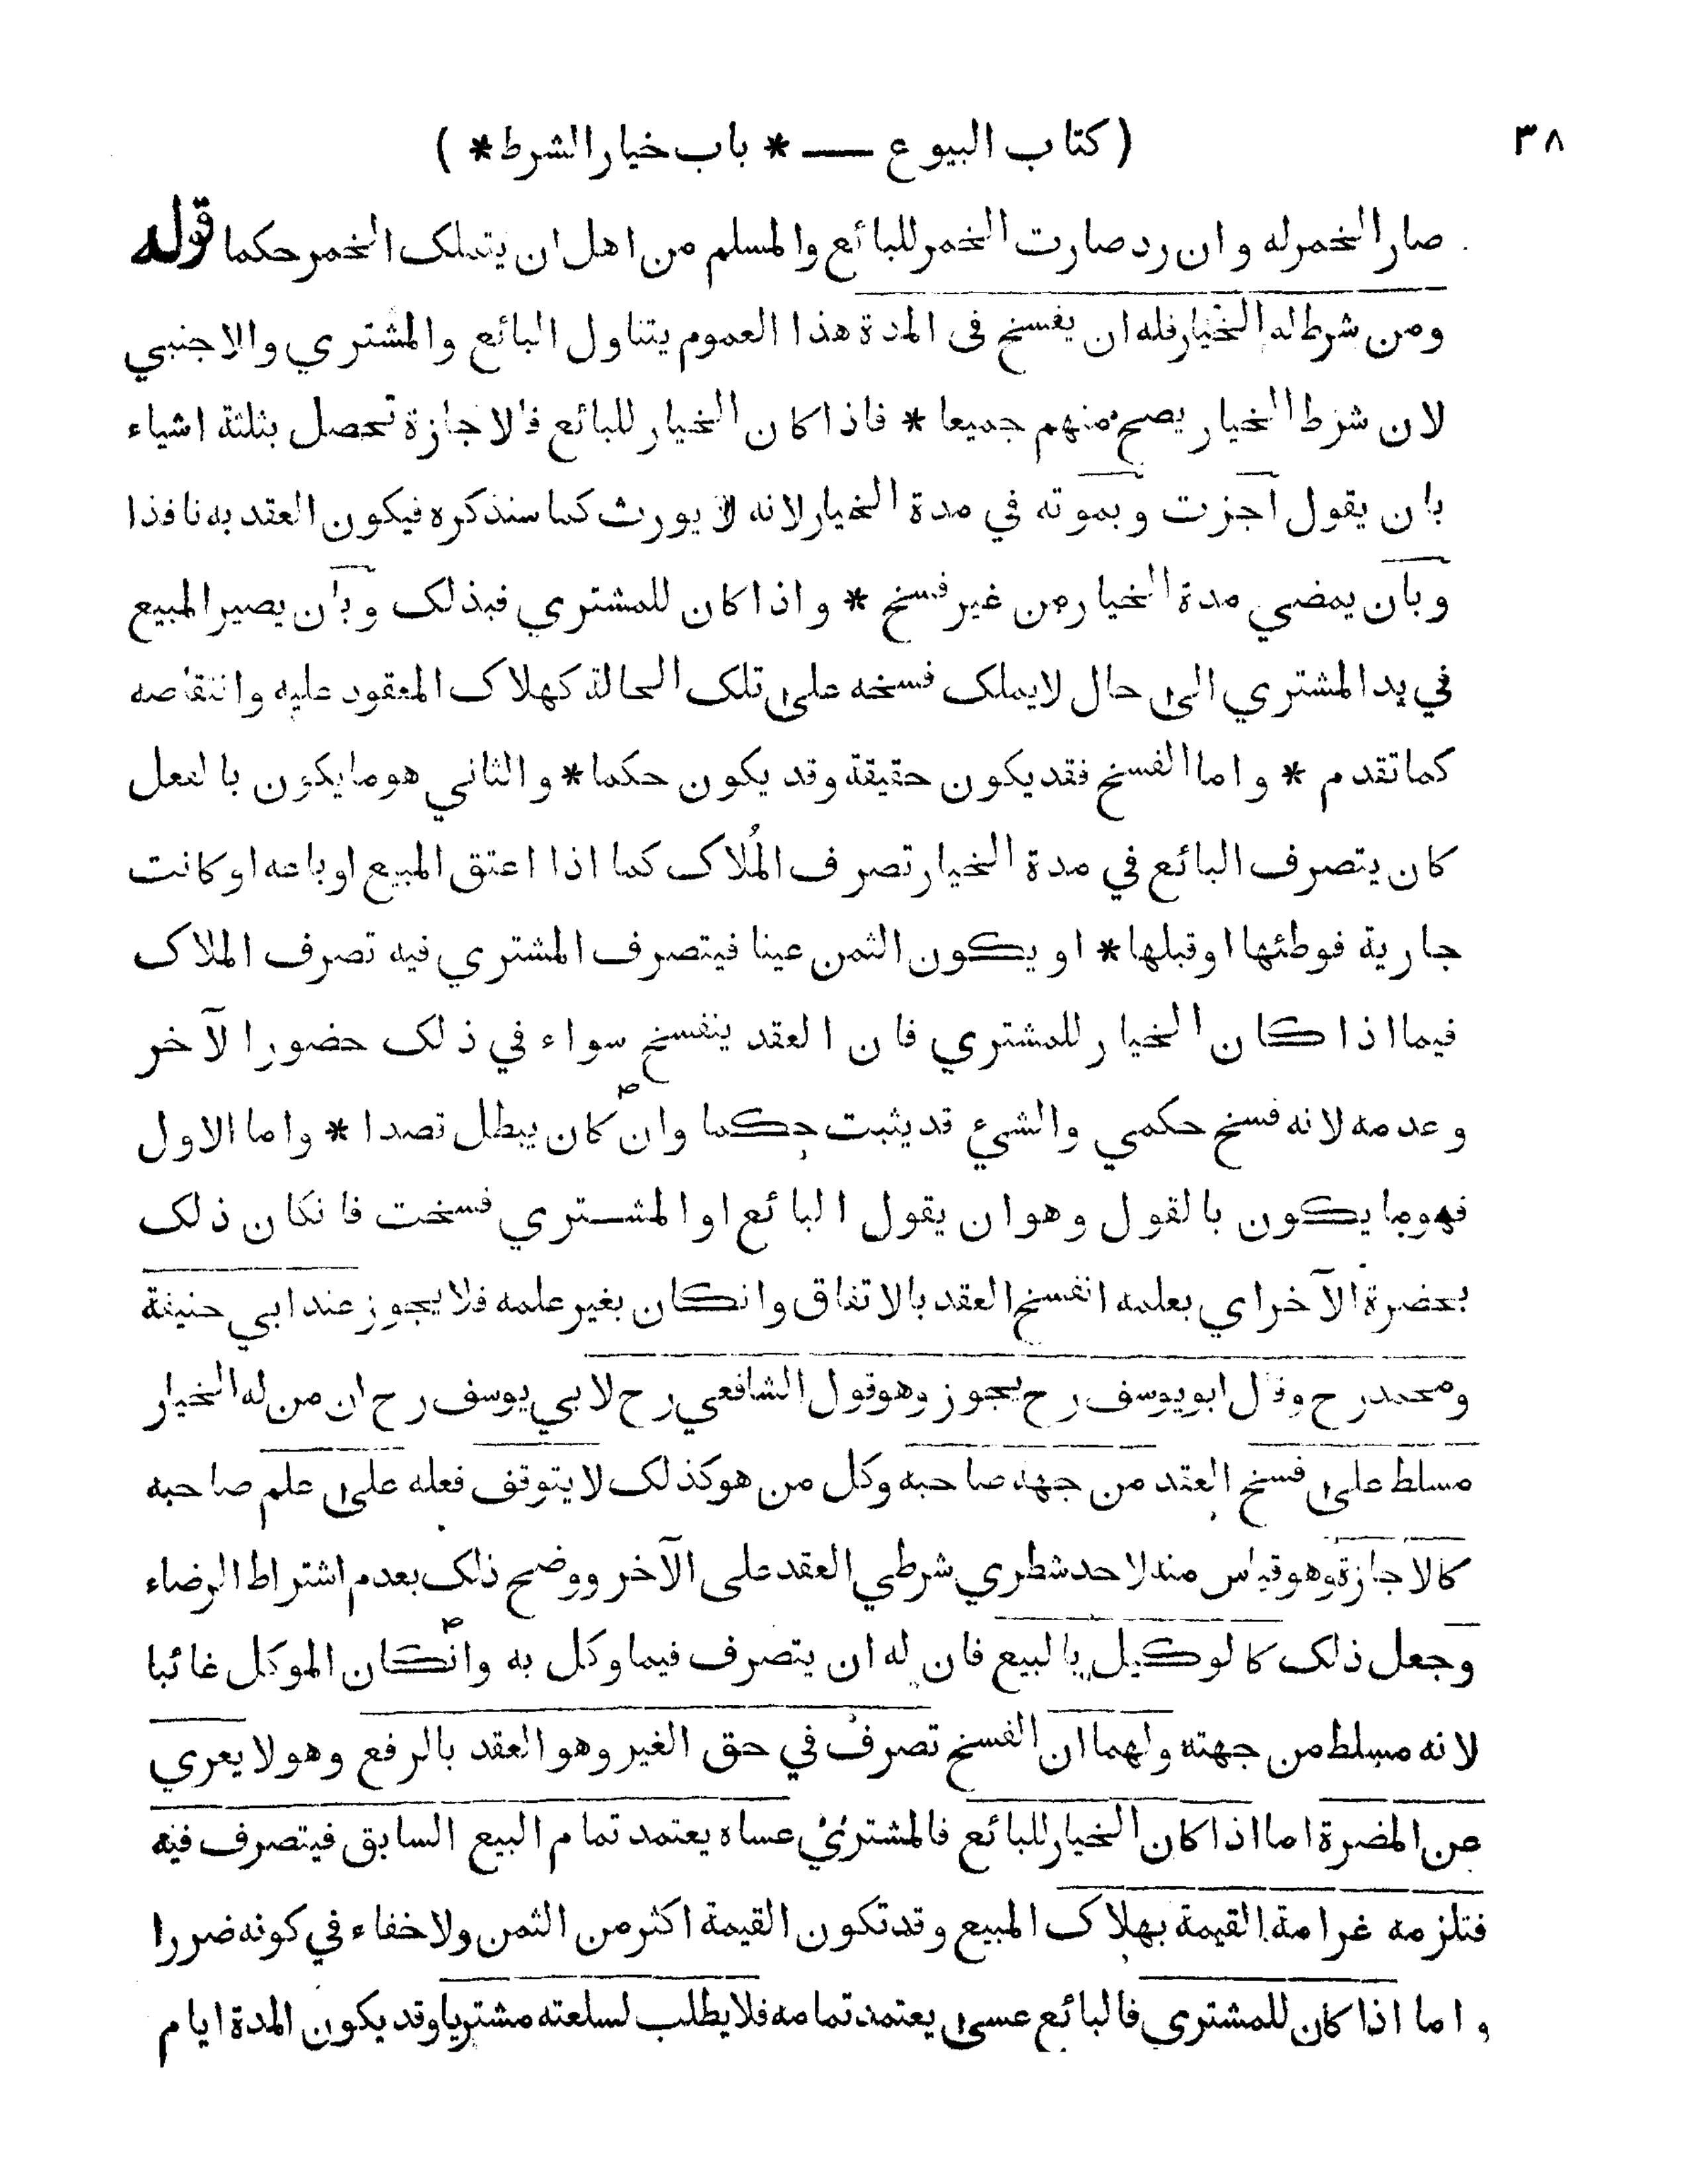 ٣٨
( كتاب البيوع — * باب خيار الشرط * )
صار الخمر له وان رد صارت الخمر للبائع والمسلم من اهل ان يتملك الخمر حكما قوله
ومن شرط له الخيار فله ان يفسخ فى المدة هذا العموم يتناول البائع والمشتري والاجنبي
لان شرط الخيار يصح منهم جميعا * فاذا كان الخيار للبائع فالاجازة تحصل بثلثة اشياء
بان يقول اجزت وبموته في مدة الخيار لانه لا يورث كما سنذكره فيكون العقد به نافذا
وبان يمضي مدة الخيار من غير فسخ * واذا كان للمشتري فبذلك وبان يصير المبيع
في يد المشتري الى حال لا يملك فسخه على تلك الحالة كهلاك المعقود عليه وانتقاصه
كما تقدم * واما الفسخ فقد يكون حقيقة وقد يكون حكما * والثاني هو ما يكون بالفعل
كان يتصرف البائع في مدة الخيار تصرف المُلاك كما اذا اعتق المبيع او باعه او كانت
جارية فوطئها او قبلها * او يكون الثمن عينا فيتصرف المشتري فيه تصرف الملاك
فيما اذا كان الخيار للمشتري فان العقد ينفسخ سواء في ذلك حضور الآخر
وعدمه لانه فسخ حكمي والشيء قد يثبت حكما وان كان يبطل قصدا * واما الاول
فهو ما يكون بالقول وهو ان يقول البائع او المشتري فسخت فانكان ذلك
بحضرة الآخر اي بعلمه انفسخ العقد بالاتفاق وانكان بغير علمه فلا يجوز عند ابي حنيفة
ومحمد رح وقال ابو يوسف رح يجوز وهو قول الشافعي رح لابي يوسف رح ان من له الخيار
مسلط على فسخ العقد من جهة صاحبه وكل من هو كذلك لا يتوقف فعله على علم صاحبه
كالاجازة وهو قياس منه لاحد شطري شرطي العقد على الآخر ووضح ذلك بعدم اشتراط الرضاء
وجعل ذلك كالوكيل بالبيع فان له ان يتصرف فيما وكل به وانكان الموكل غائبا
لانه مسلط من جهته ولهما ان الفسخ تصرف في حق الغير وهو العقد بالرفع وهو لا يعري
عن المضرة اما اذا كان الخيار للبائع فالمشتري عساه يعتمد تمام البيع السابق فيتصرف فيه
فتلزمه غرامة القيمة بهلاك المبيع وقد تكون القيمة اكثر من الثمن ولا خفاء في كونه ضررا
واما اذا كان للمشتري فالبائع عسى يعتمد تمامه فلا يطلب لسلعته مشتريا وقد يكون المدة ايام